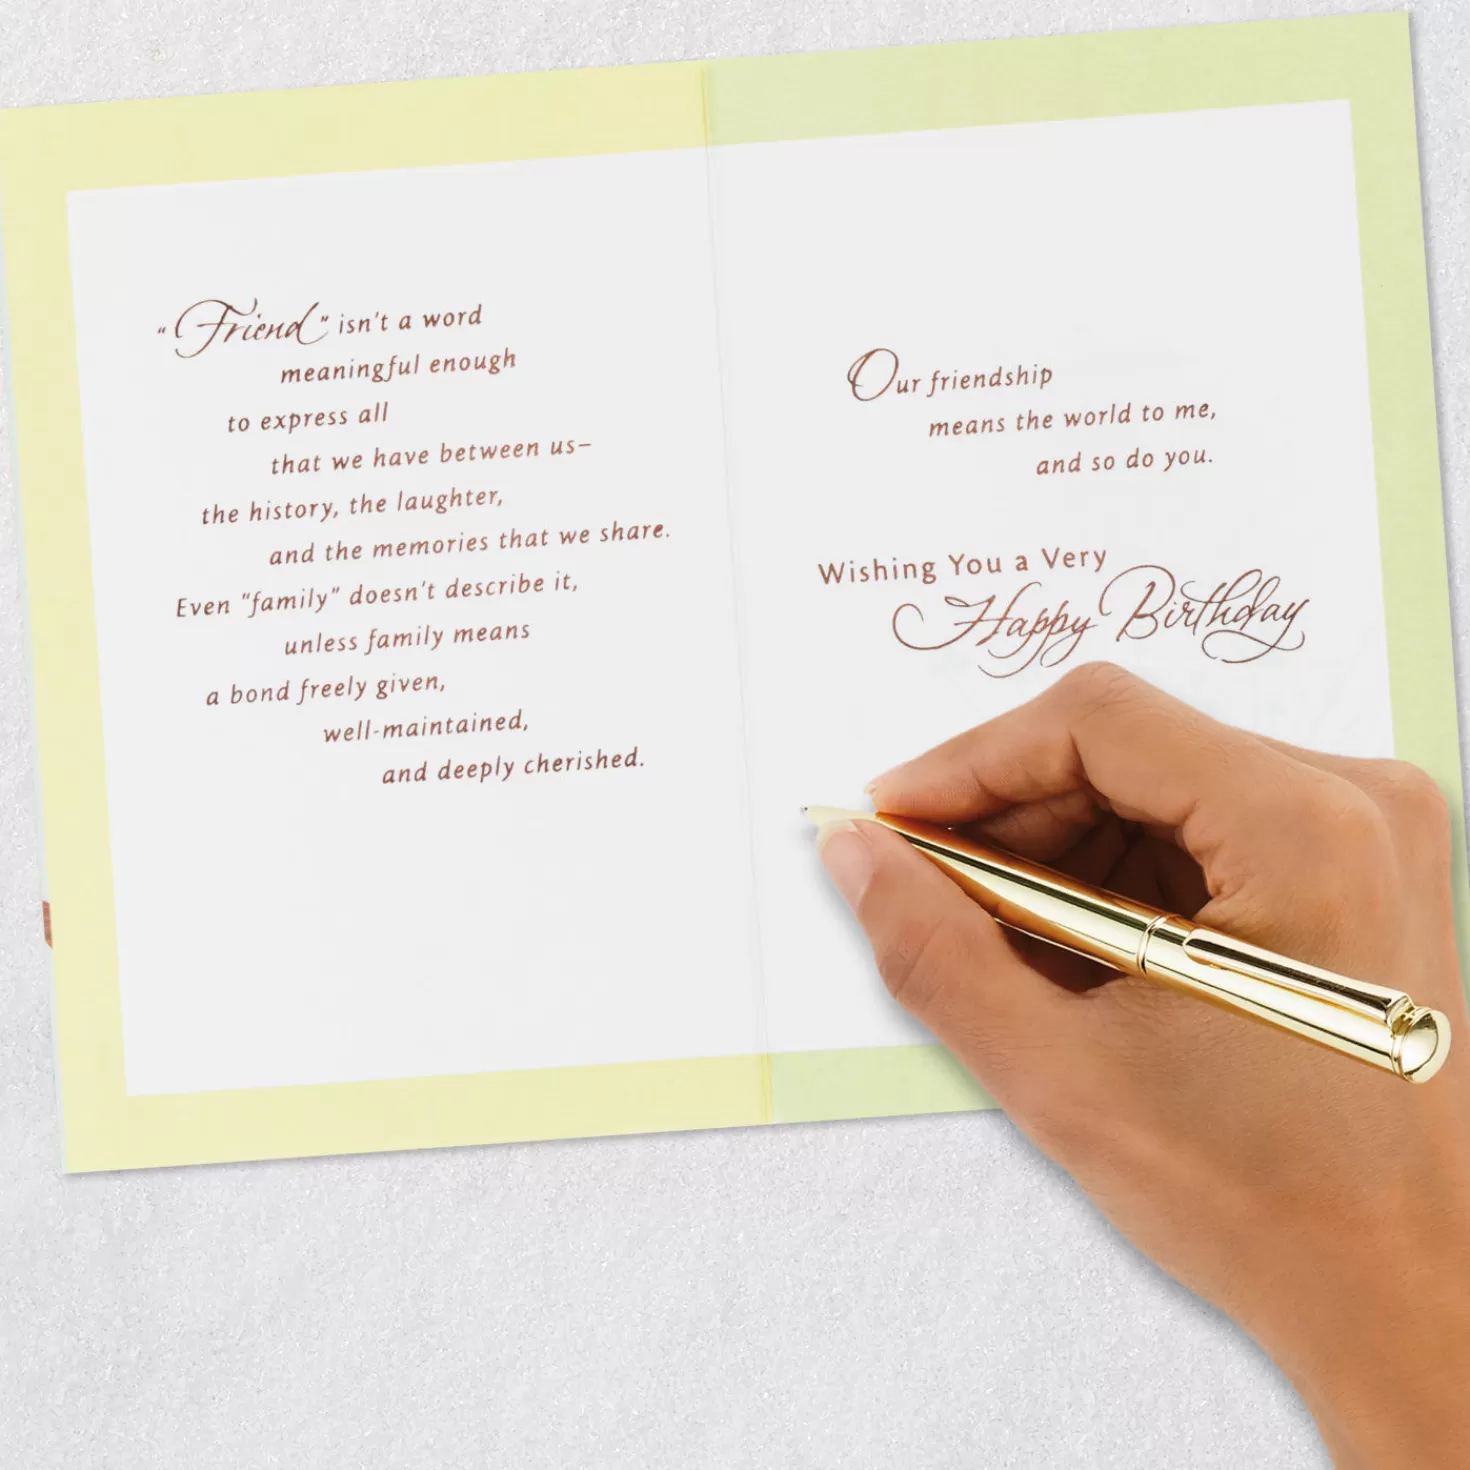 “Friend” isn't a word
meaningful enough
to express all
that we have between us–
the history, the laughter,
and the memories that we share.
Even "family" doesn't describe it,
unless family means
a bond freely given,
well-maintained,
and deeply cherished.
Our friendship
means the world to me,
and so do you.
Wishing You a Very
Happy Birthday